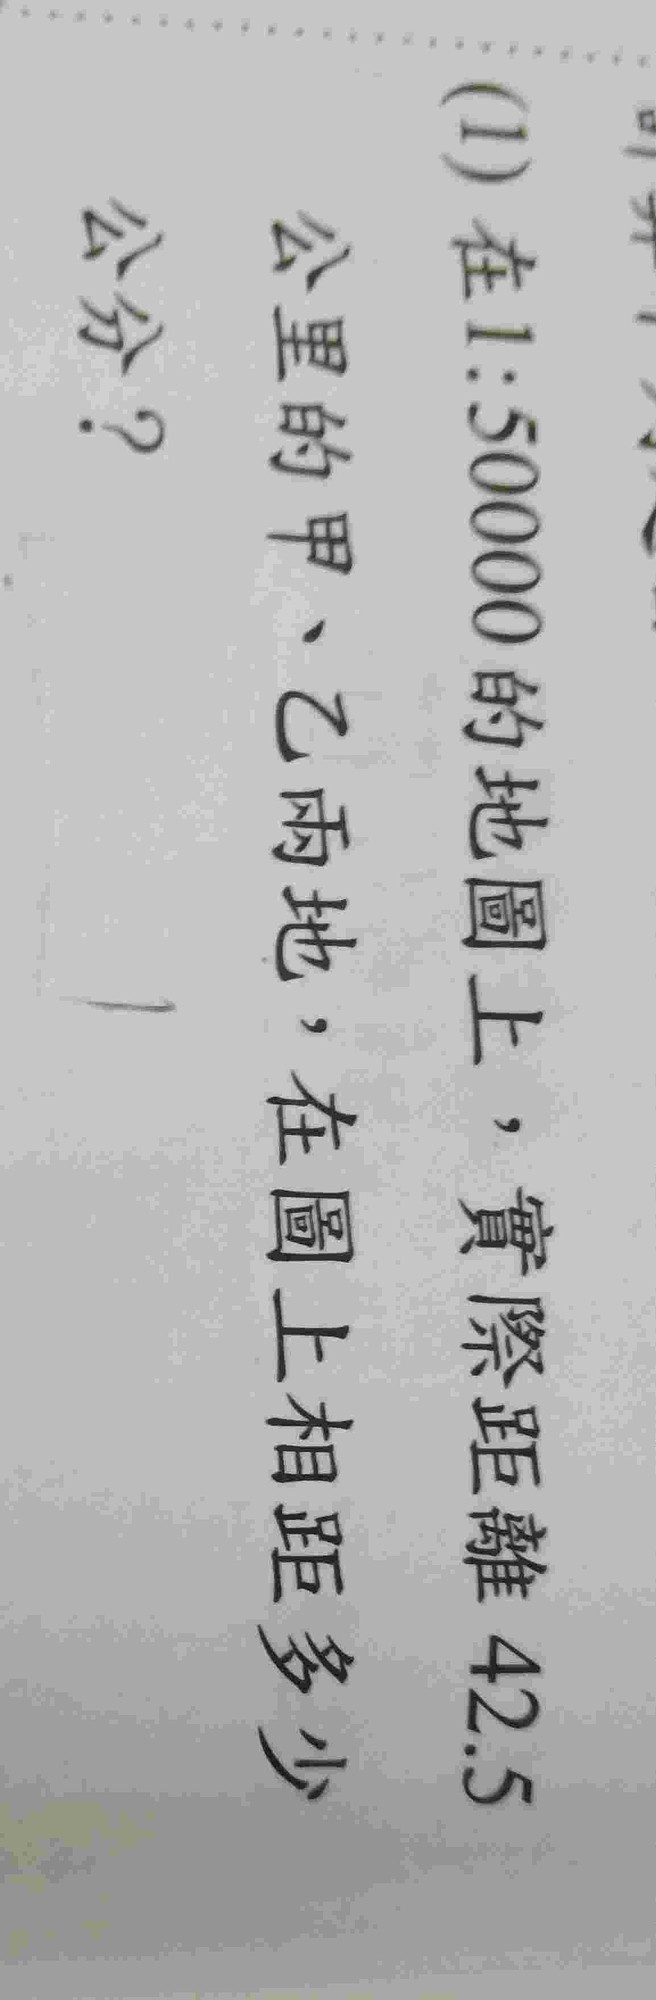 (1) 在1:50000的地圖上，實際距離 42.5
公里的甲、乙兩地，在圖上相距多少
公分？